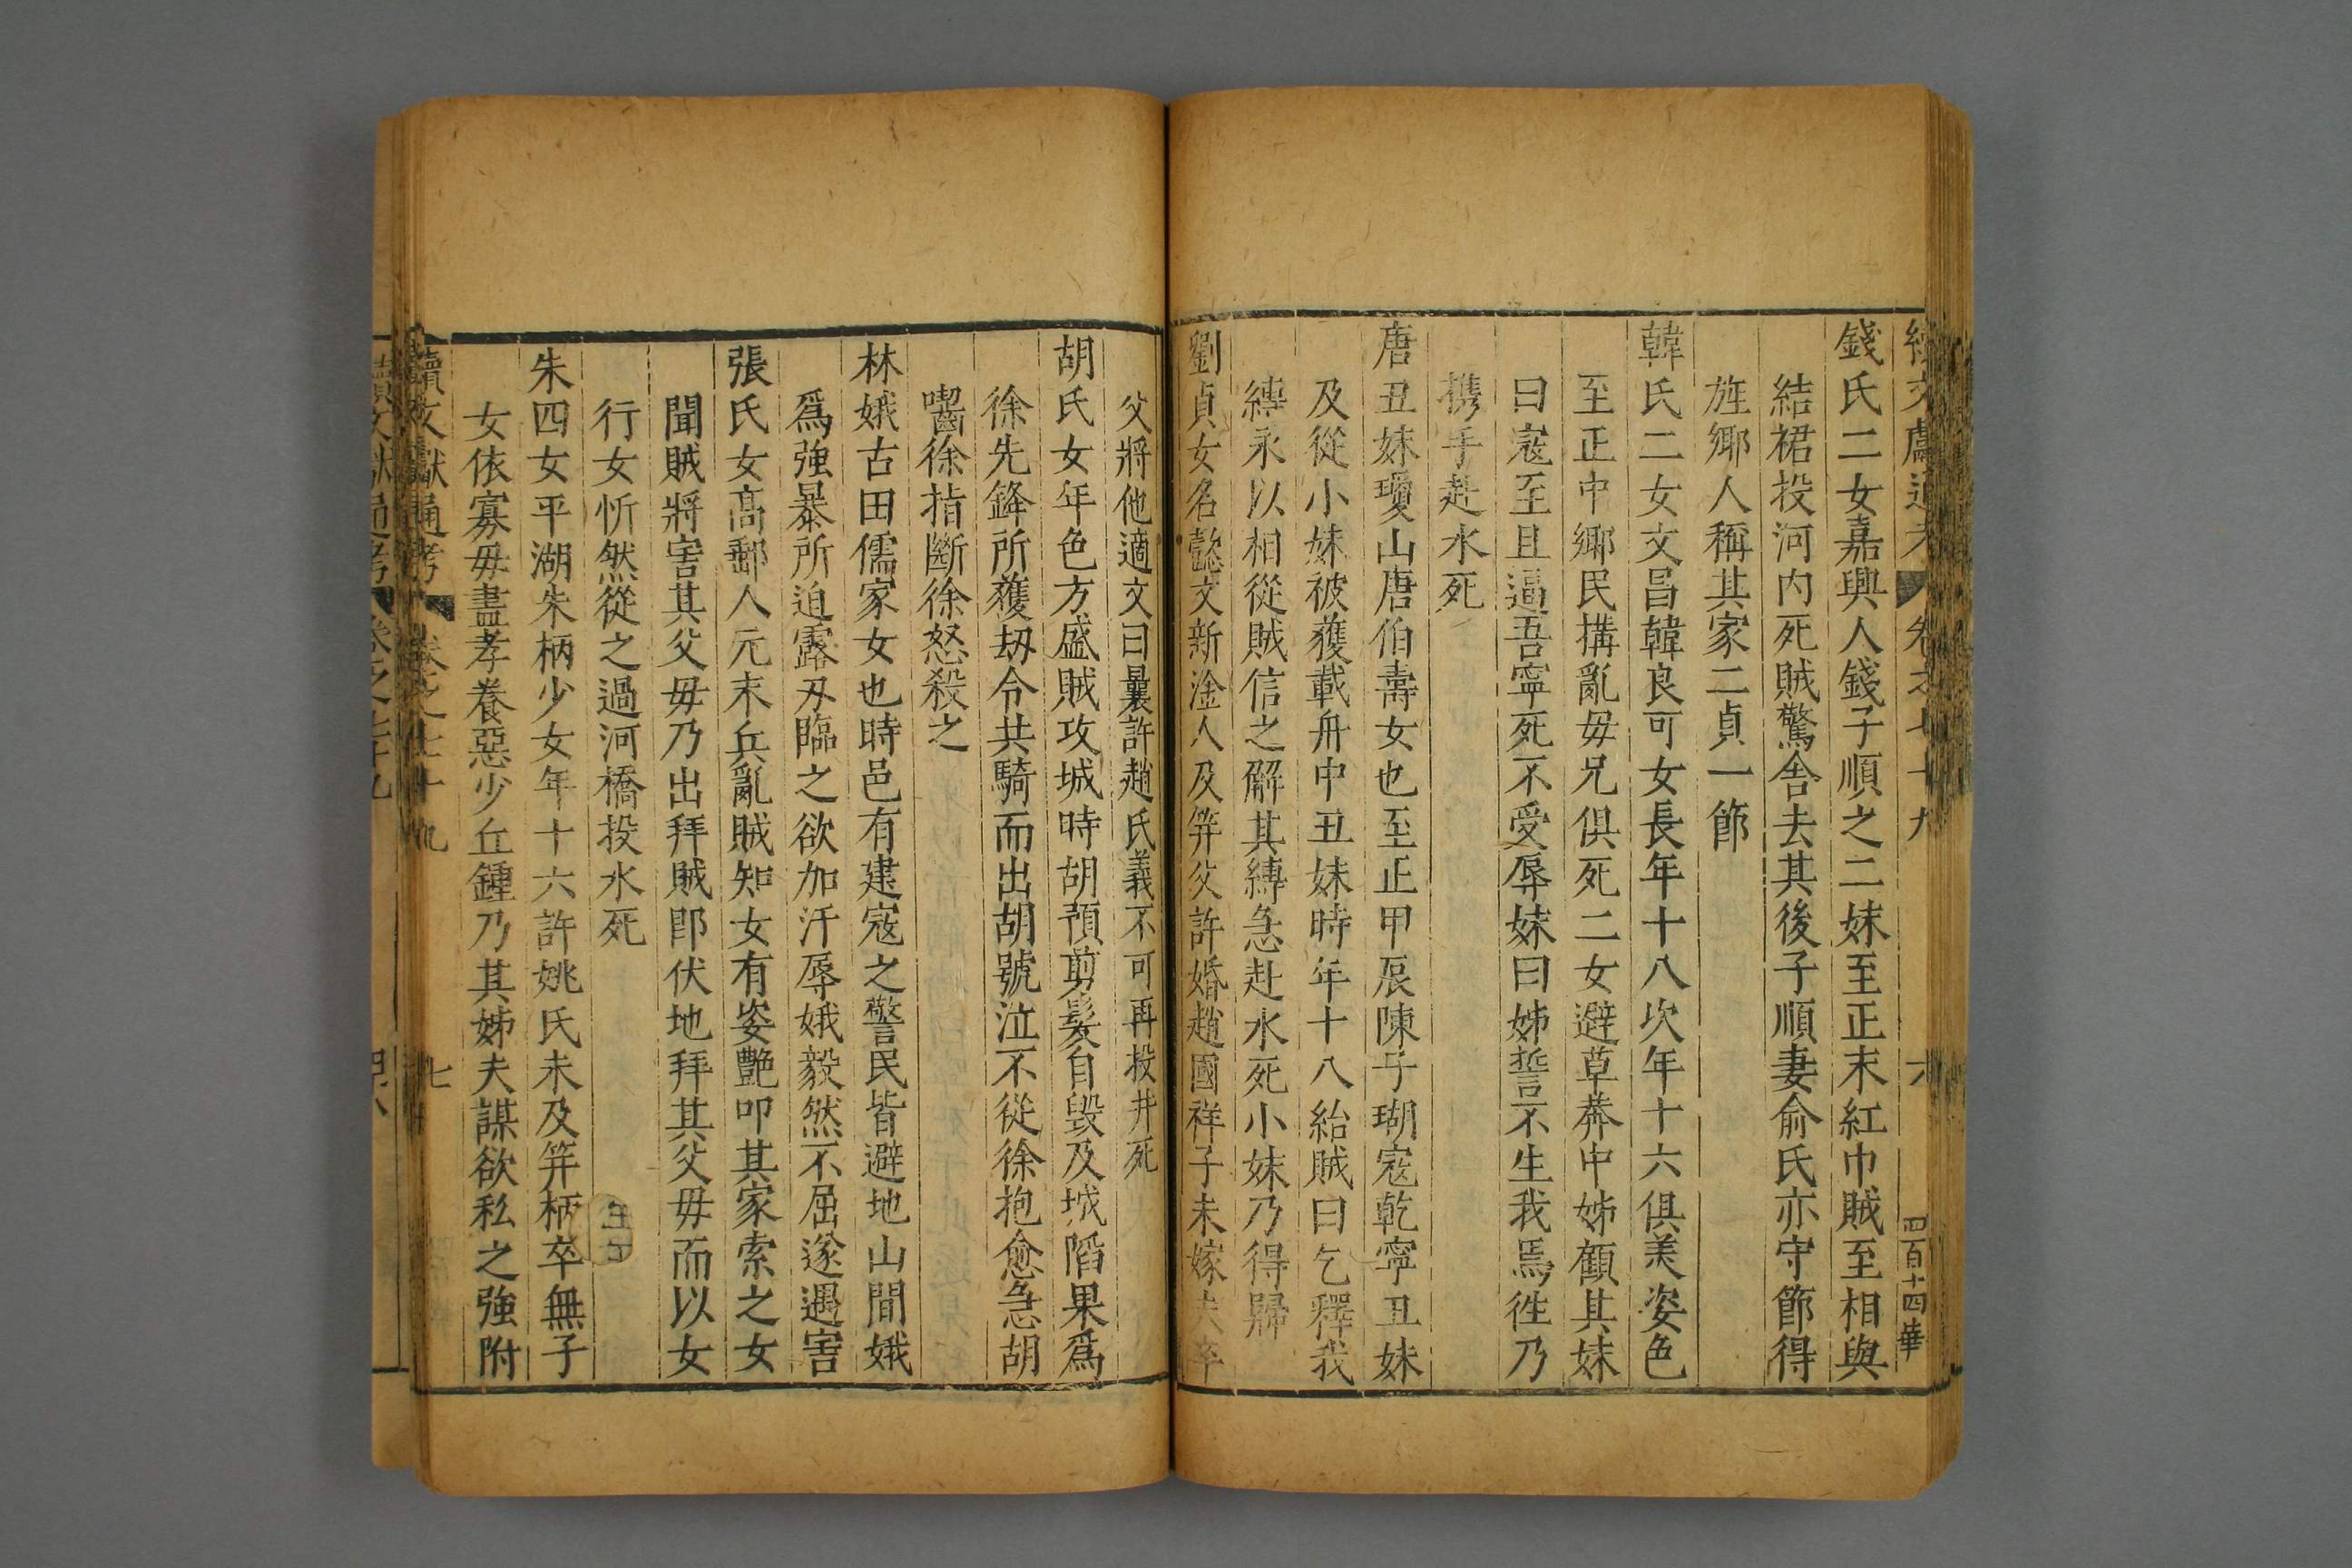 錢氏二女嘉興人錢子順之二妹至正末紅巾賊至相與
結裙投河内死賊驚舍去其後子順妻俞氏亦守節得
旌鄉人稱其家二貞一節
韓氏二女文昌韓良可女長年十八次年十六俱美姿色
至正中鄉民搆亂毋兄俱死二女避草莽中姊顧其妹
曰寇至且逼吾寧死不受辱妹曰姊誓不生我焉徃乃
携手赴水死
唐丑妹瓊山唐伯壽女也至正甲辰陳子瑚寇乾寧丑妹
及從小妹被獲載舟中丑妹時年十八紿賊曰乞釋我
縛永以相從賊信之解其縛急赴水死小妹乃得歸
劉貞女名懿文新淦人及筓父許婚趙國祥子未嫁夫卒
父將他適文曰曩許趙氏義不可再投井死
胡氏女年色方盛賊攻城時胡預剪髮自毀及城陷果爲
徐先鋒所獲刼令共騎而出胡號泣不從徐抱愈急胡
嚙徐指斷徐怒殺之
林娥古田儒家女也時邑有建寇之警民皆避地山間娥
爲強暴所迫露刃臨之欲加汗辱娥毅然不屈遂遇害
張氏女高郵人元末兵亂賊知女有姿艶叩其家索之女
聞賊將害其父毋乃出拜賊即伏地拜其父毋而以女
行女忻然從之過河橋投水死
朱四女平湖朱柄少女年十六許姚氏未及筓柄卒無子
女依寡毋盡孝養惡少丘鍾乃其姊夫謀欲私之強附
續文獻通考 卷之七十九 七